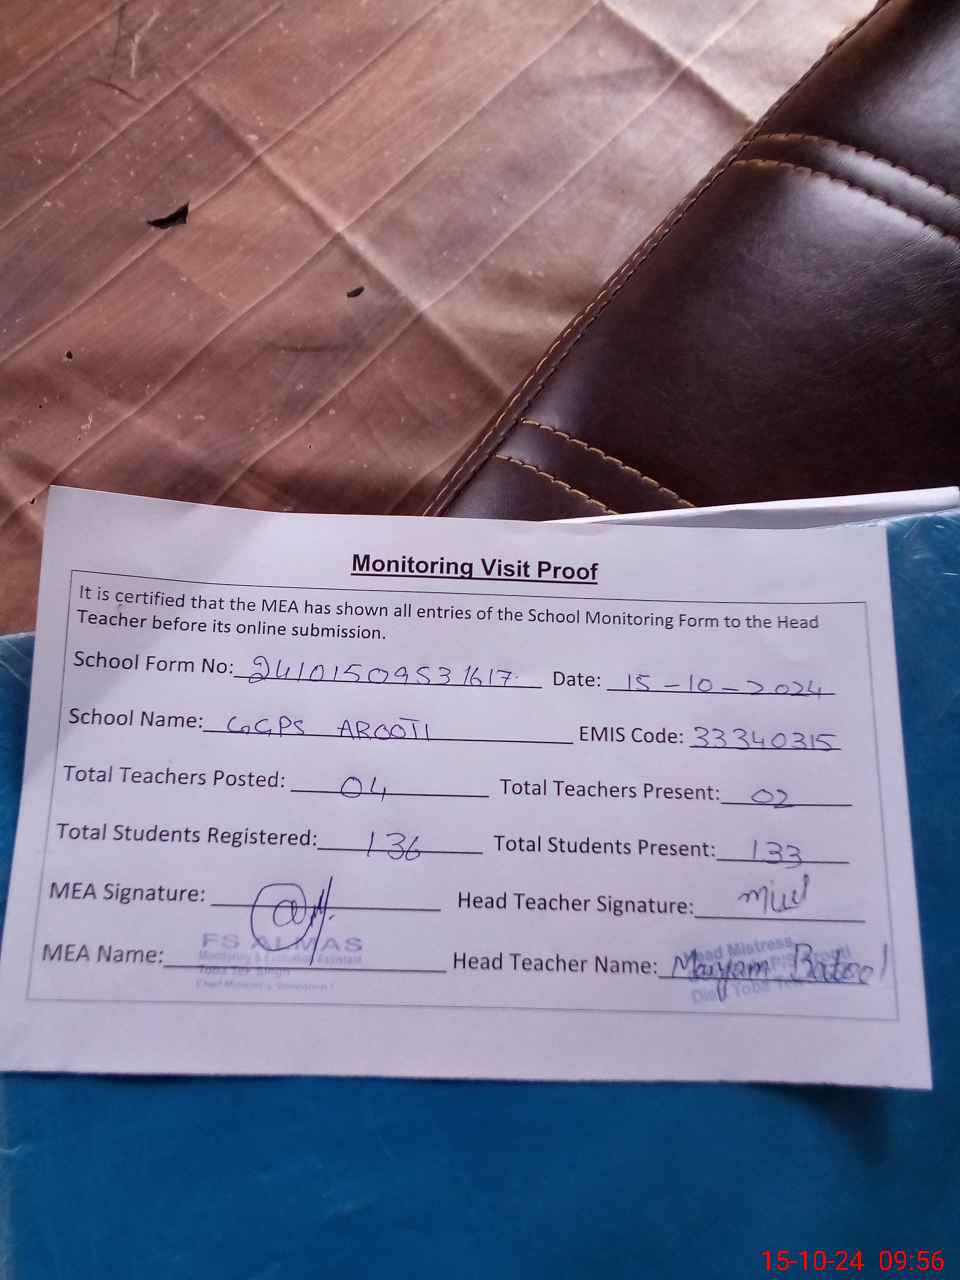 Monitoring Visit Proof
It is certified that the MEA has shown all entries of the School Monitoring Form to the Head
Teacher before its online submission.
School Form No: 24101509531617 Date: 15-10-2024
School Name: GGPS AROOTI EMIS Code: 33340315
Total Teachers Posted: 04 Total Teachers Present: 02
Total Students Registered: 136 Total Students Present: 133
MEA Signature: Head Teacher Signature:
FS ALMAS
Monitoring & Evaluation Assistant
MEA Name: Head Teacher Name: Maryam Batool
Toba Tek Singh
Head Mistress
15-10-24 09:56